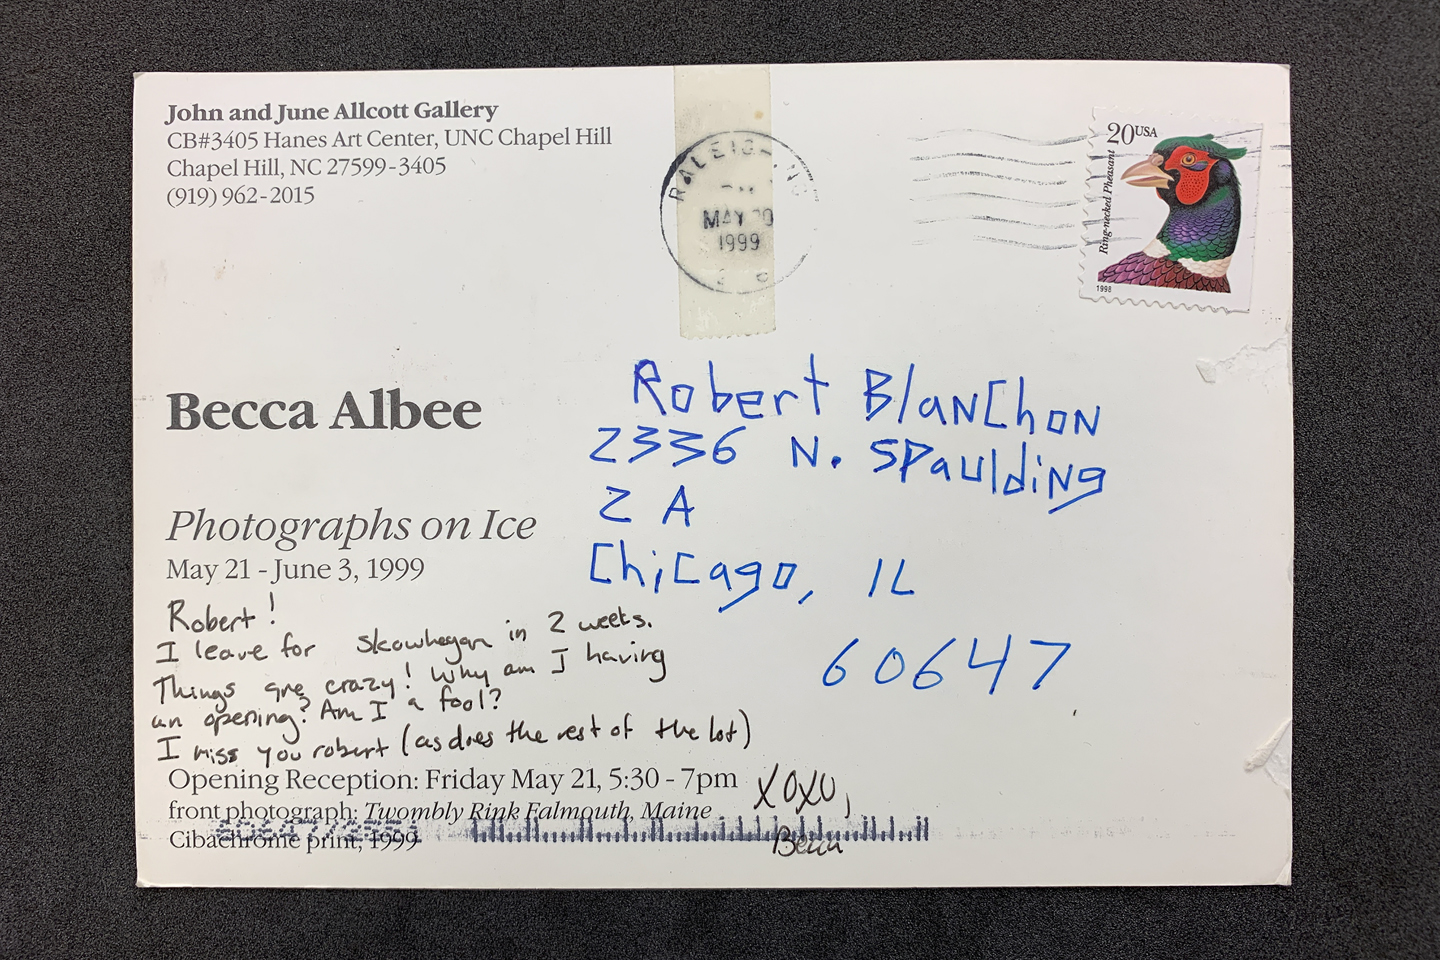 John and June Allcott Gallery
CB#3405 Hanes Art Center, UNC Chapel Hill
Chapel Hill, NC 27599-3405
(919) 962-2015
RALEIGH NC
MAY 20
1999
20USA
Ring-necked Pheasant
1998
Robert Blanchon
2336 N. Spaulding
2 A
Chicago, IL
60647
Becca Albee
Photographs on Ice
May 21 - June 3, 1999
Robert!
I leave for Skowhegan in 2 weeks.
Things are crazy! Why am I having
an opening? Am I a fool?
I miss you robert (as does the rest of the lot)
Opening Reception: Friday May 21, 5:30 - 7pm
XOXO,
front photograph: Twombly Rink Falmouth, Maine
Cibachrome print, 1999
Becca